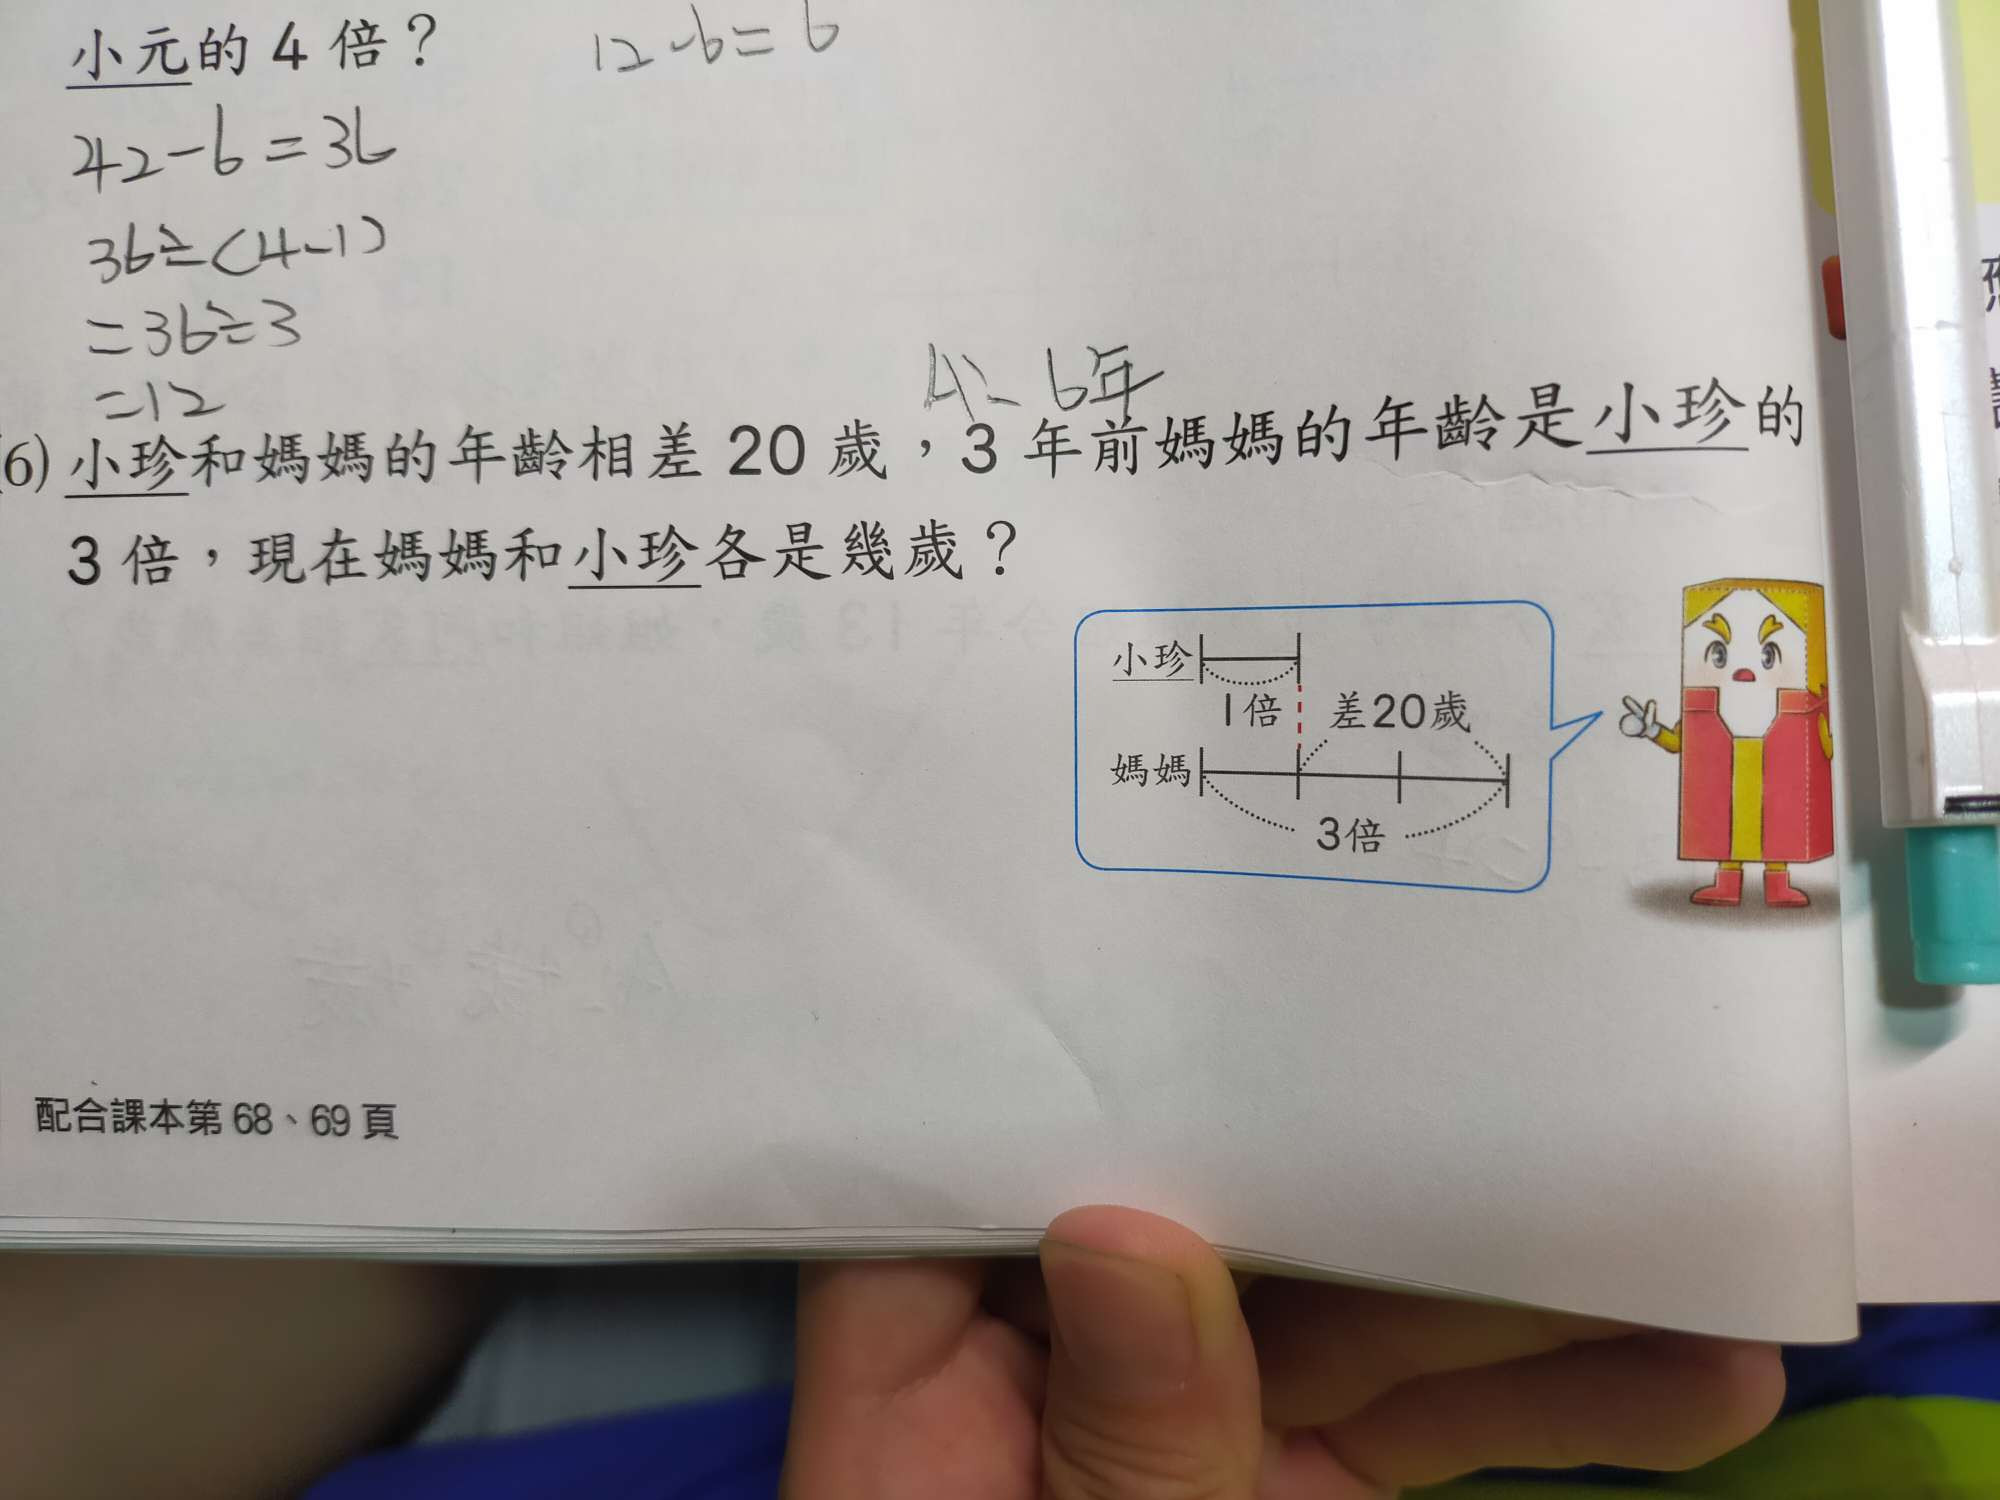 小元的 4 倍？
12-6=6
42-6=36
36÷(4-1)
=36÷3
=12
A：6年
(6) 小珍和媽媽的年齡相差 20 歲，3 年前媽媽的年齡是小珍的
3 倍，現在媽媽和小珍各是幾歲？
小珍
1倍
差20歲
媽媽
3倍
配合課本第 68、69 頁